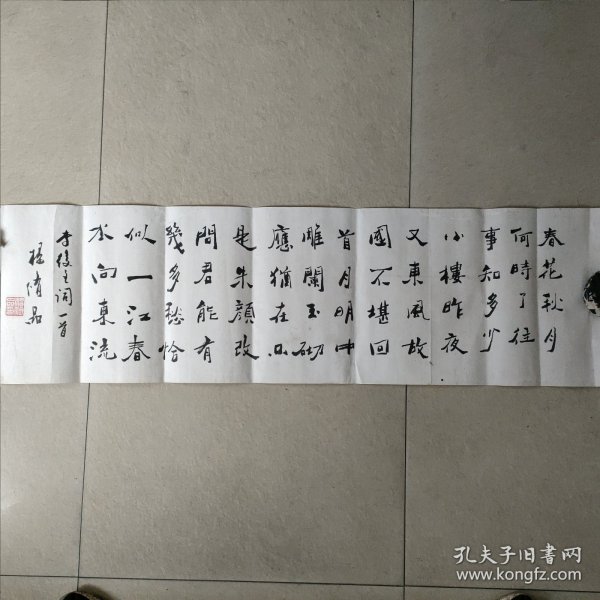 春花秋月
何時了往
事知多少
小樓昨夜
又東風故
國不堪回
首月明中
雕闌玉砌
應猶在只
是朱顏改
問君能有
幾多愁恰
似一江春
水向東流
李後主詞一首
孔夫子旧书网
www.kongfz.com